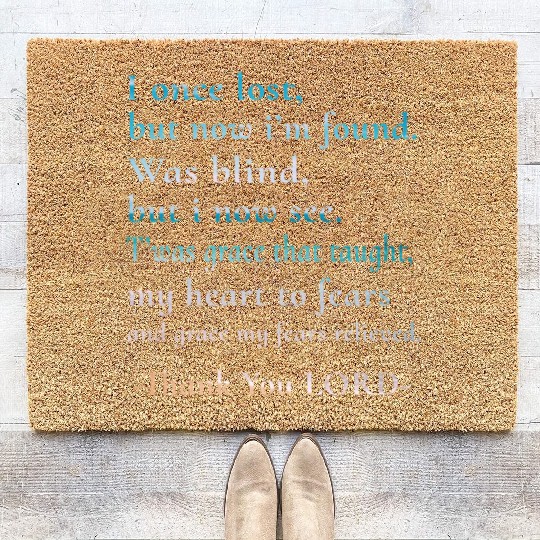 i once lost,
but now i'm found.
Was blind,
but i now see.
T'was grace that taught,
my heart to fears
and grace my fears relieved.
Thank You LORD.